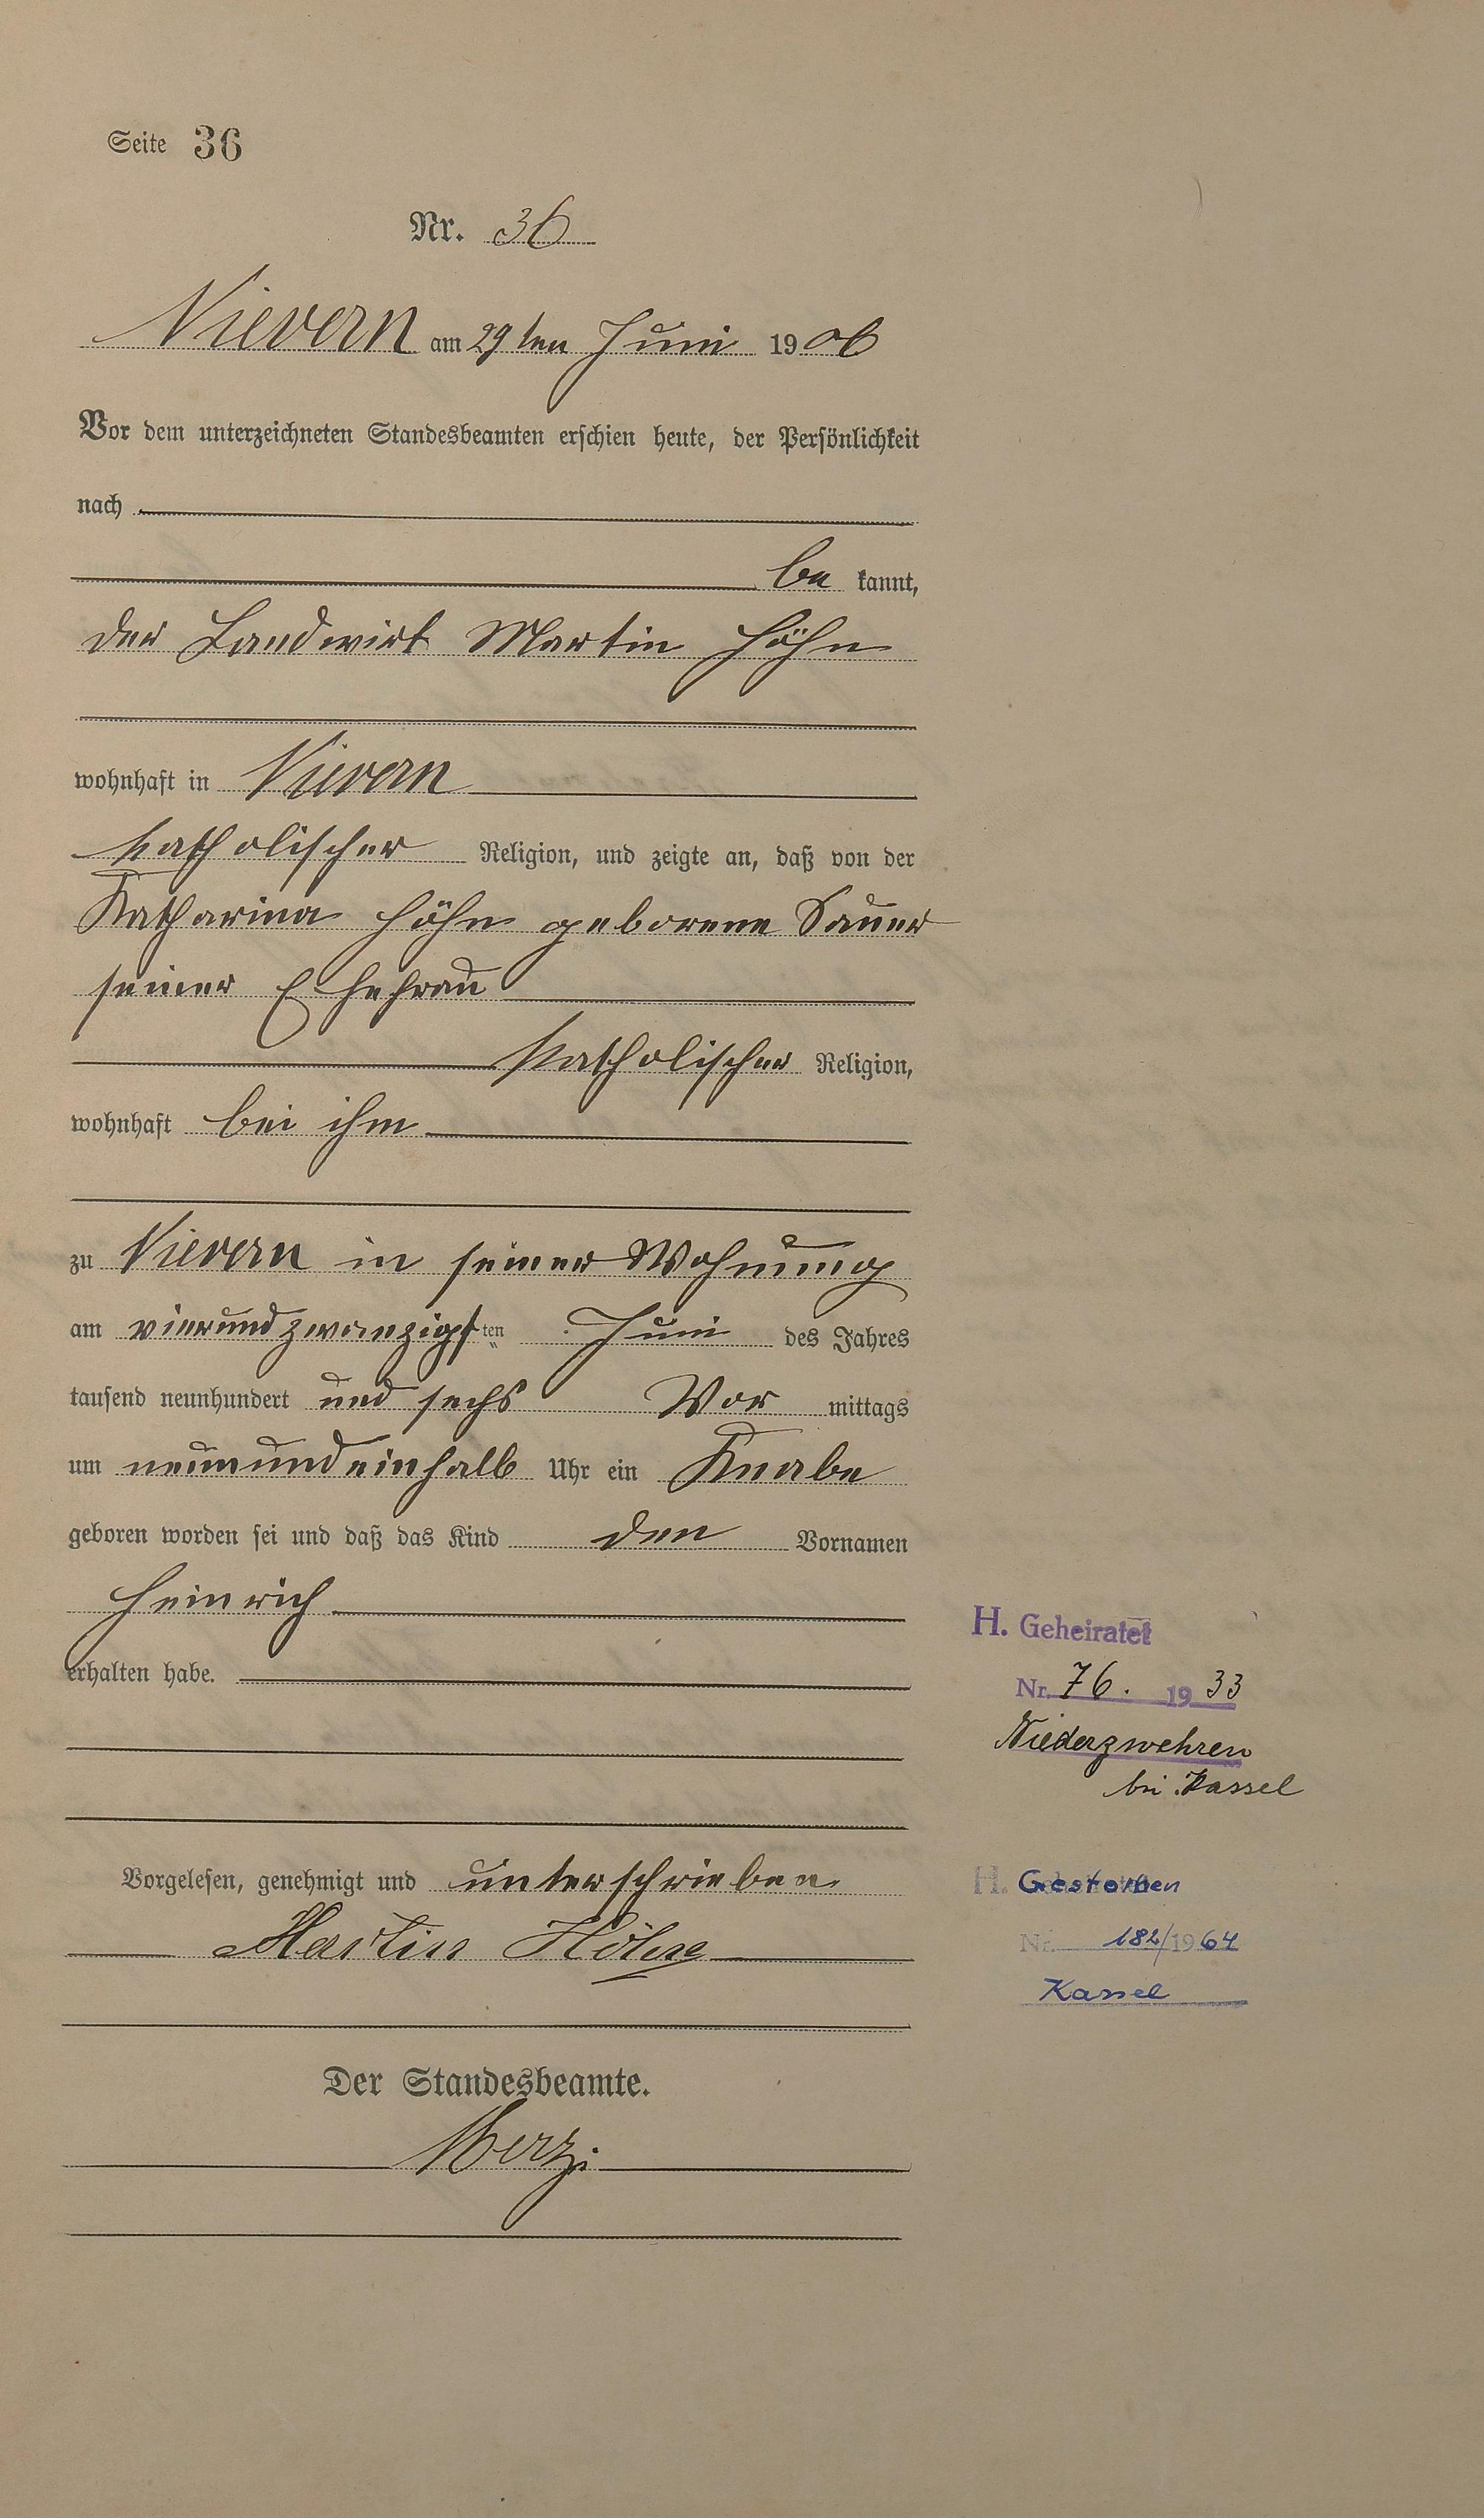 Seite 36
Nr. 36
Nievern am 29ten Juni 1906
Vor dem unterzeichneten Standesbeamten erschien heute, der Persönlichkeit
nach
be kannt,
der Landwirt Martin Höhn
wohnhaft in Nievern
katholischer Religion, und zeigte an, daß von der
Katharina Höhn geborene Sauer
seiner Ehefrau
katholischer Religion,
wohnhaft bei ihm
zu Nievern in seiner Wohnung
am vierundzwanzigsten Juni des Jahres
tausend neunhundert und sechs Vor mittags
um neunundeinhalb Uhr ein Knabe
geboren worden sei und daß das Kind den Vornamen
Heinrich
erhalten habe.
H. Geheiratet
Nr. 76. 1933
Niederzwehren
bei Kassel
Vorgelesen, genehmigt und unterschrieben
Martin Höhn
H. Gestorben
Nr. 182/1964
Kassel
Der Standesbeamte.